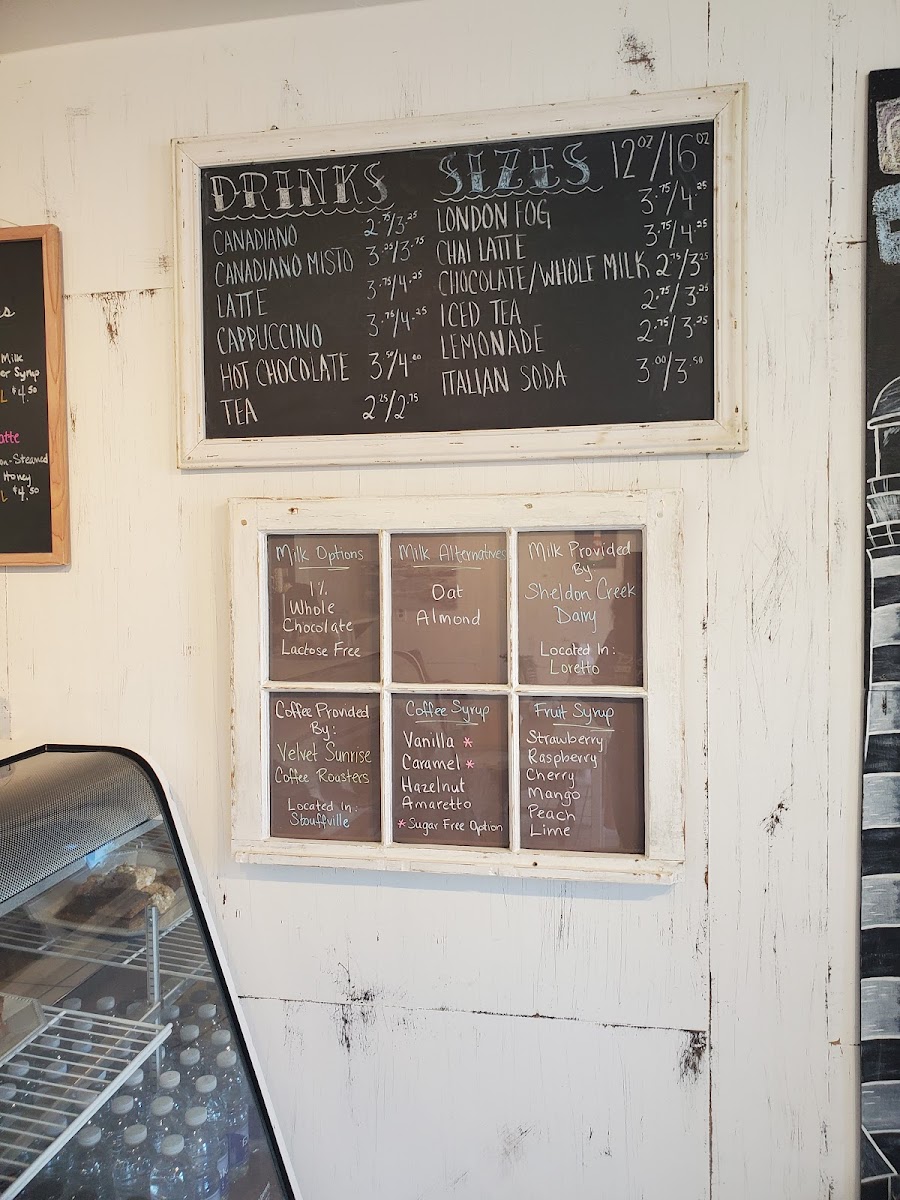 DRINKS
CANADIANO 2.75/3.25
CANADIANO MISTO 3.25/3.75
LATTE 3.75/4.25
CAPPUCCINO 3.75/4.25
HOT CHOCOLATE 3.50/4.00
TEA 2.25/2.75
SIZES 12oz/16oz
LONDON FOG 3.75/4.25
CHAI LATTE 3.75/4.25
CHOCOLATE/WHOLE MILK 2.75/3.25
ICED TEA 2.75/3.25
LEMONADE 2.75/3.25
ITALIAN SODA 3.00/3.50
Milk
Syrup
$4.50
Steamed
Honey
$4.50
Milk Options
1%
Whole
Chocolate
Lactose Free
Milk Alternatives
Oat
Almond
Milk Provided
By:
Sheldon Creek
Dairy
Located In:
Loretto
Coffee Provided
By:
Velvet Sunrise
Coffee Roasters
Located In:
Stouffville
Coffee Syrup
Vanilla *
Caramel *
Hazelnut
Amaretto
* Sugar Free Option
Fruit Syrup
Strawberry
Raspberry
Cherry
Mango
Peach
Lime